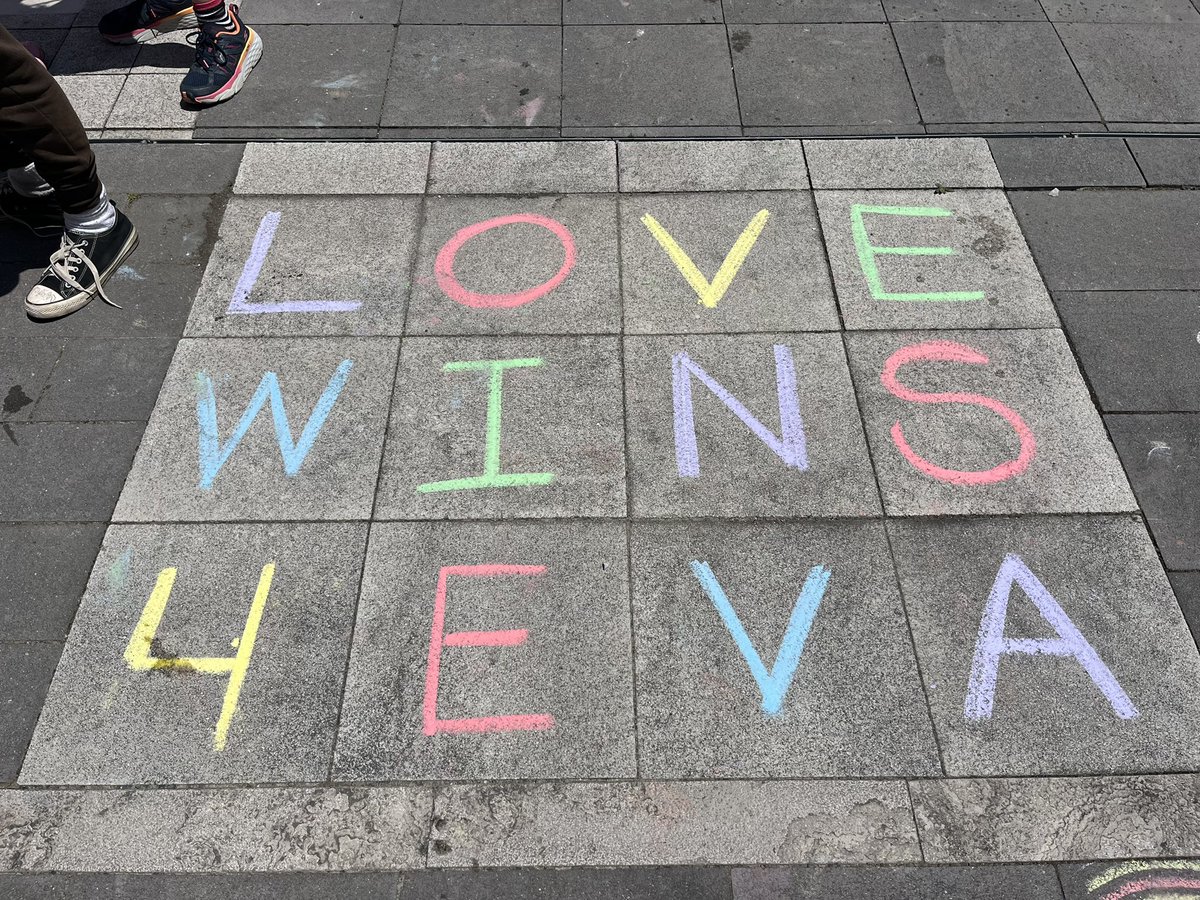 LOVE
WINS
4EVA